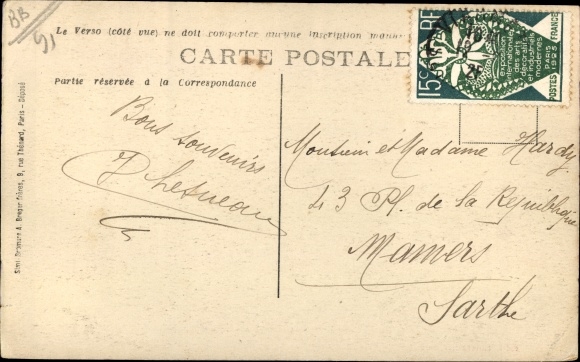 BB
91
Le Verso (côté vue) ne doit comporter aucune inscription manu
CARTE POSTALE
Partie réservée à la Correspondance
15c
RF
exposition
internationale
des arts
décoratifs
et industriels
modernes
PARIS
1925
POSTES FRANCE
Bons souvenirs
Monsieur et Madame Hardy
43 Pl. de la République
Mamers
Sarthe
Simi-Bromure A. Breger frères, 9, rue Thénard, Paris - Déposé